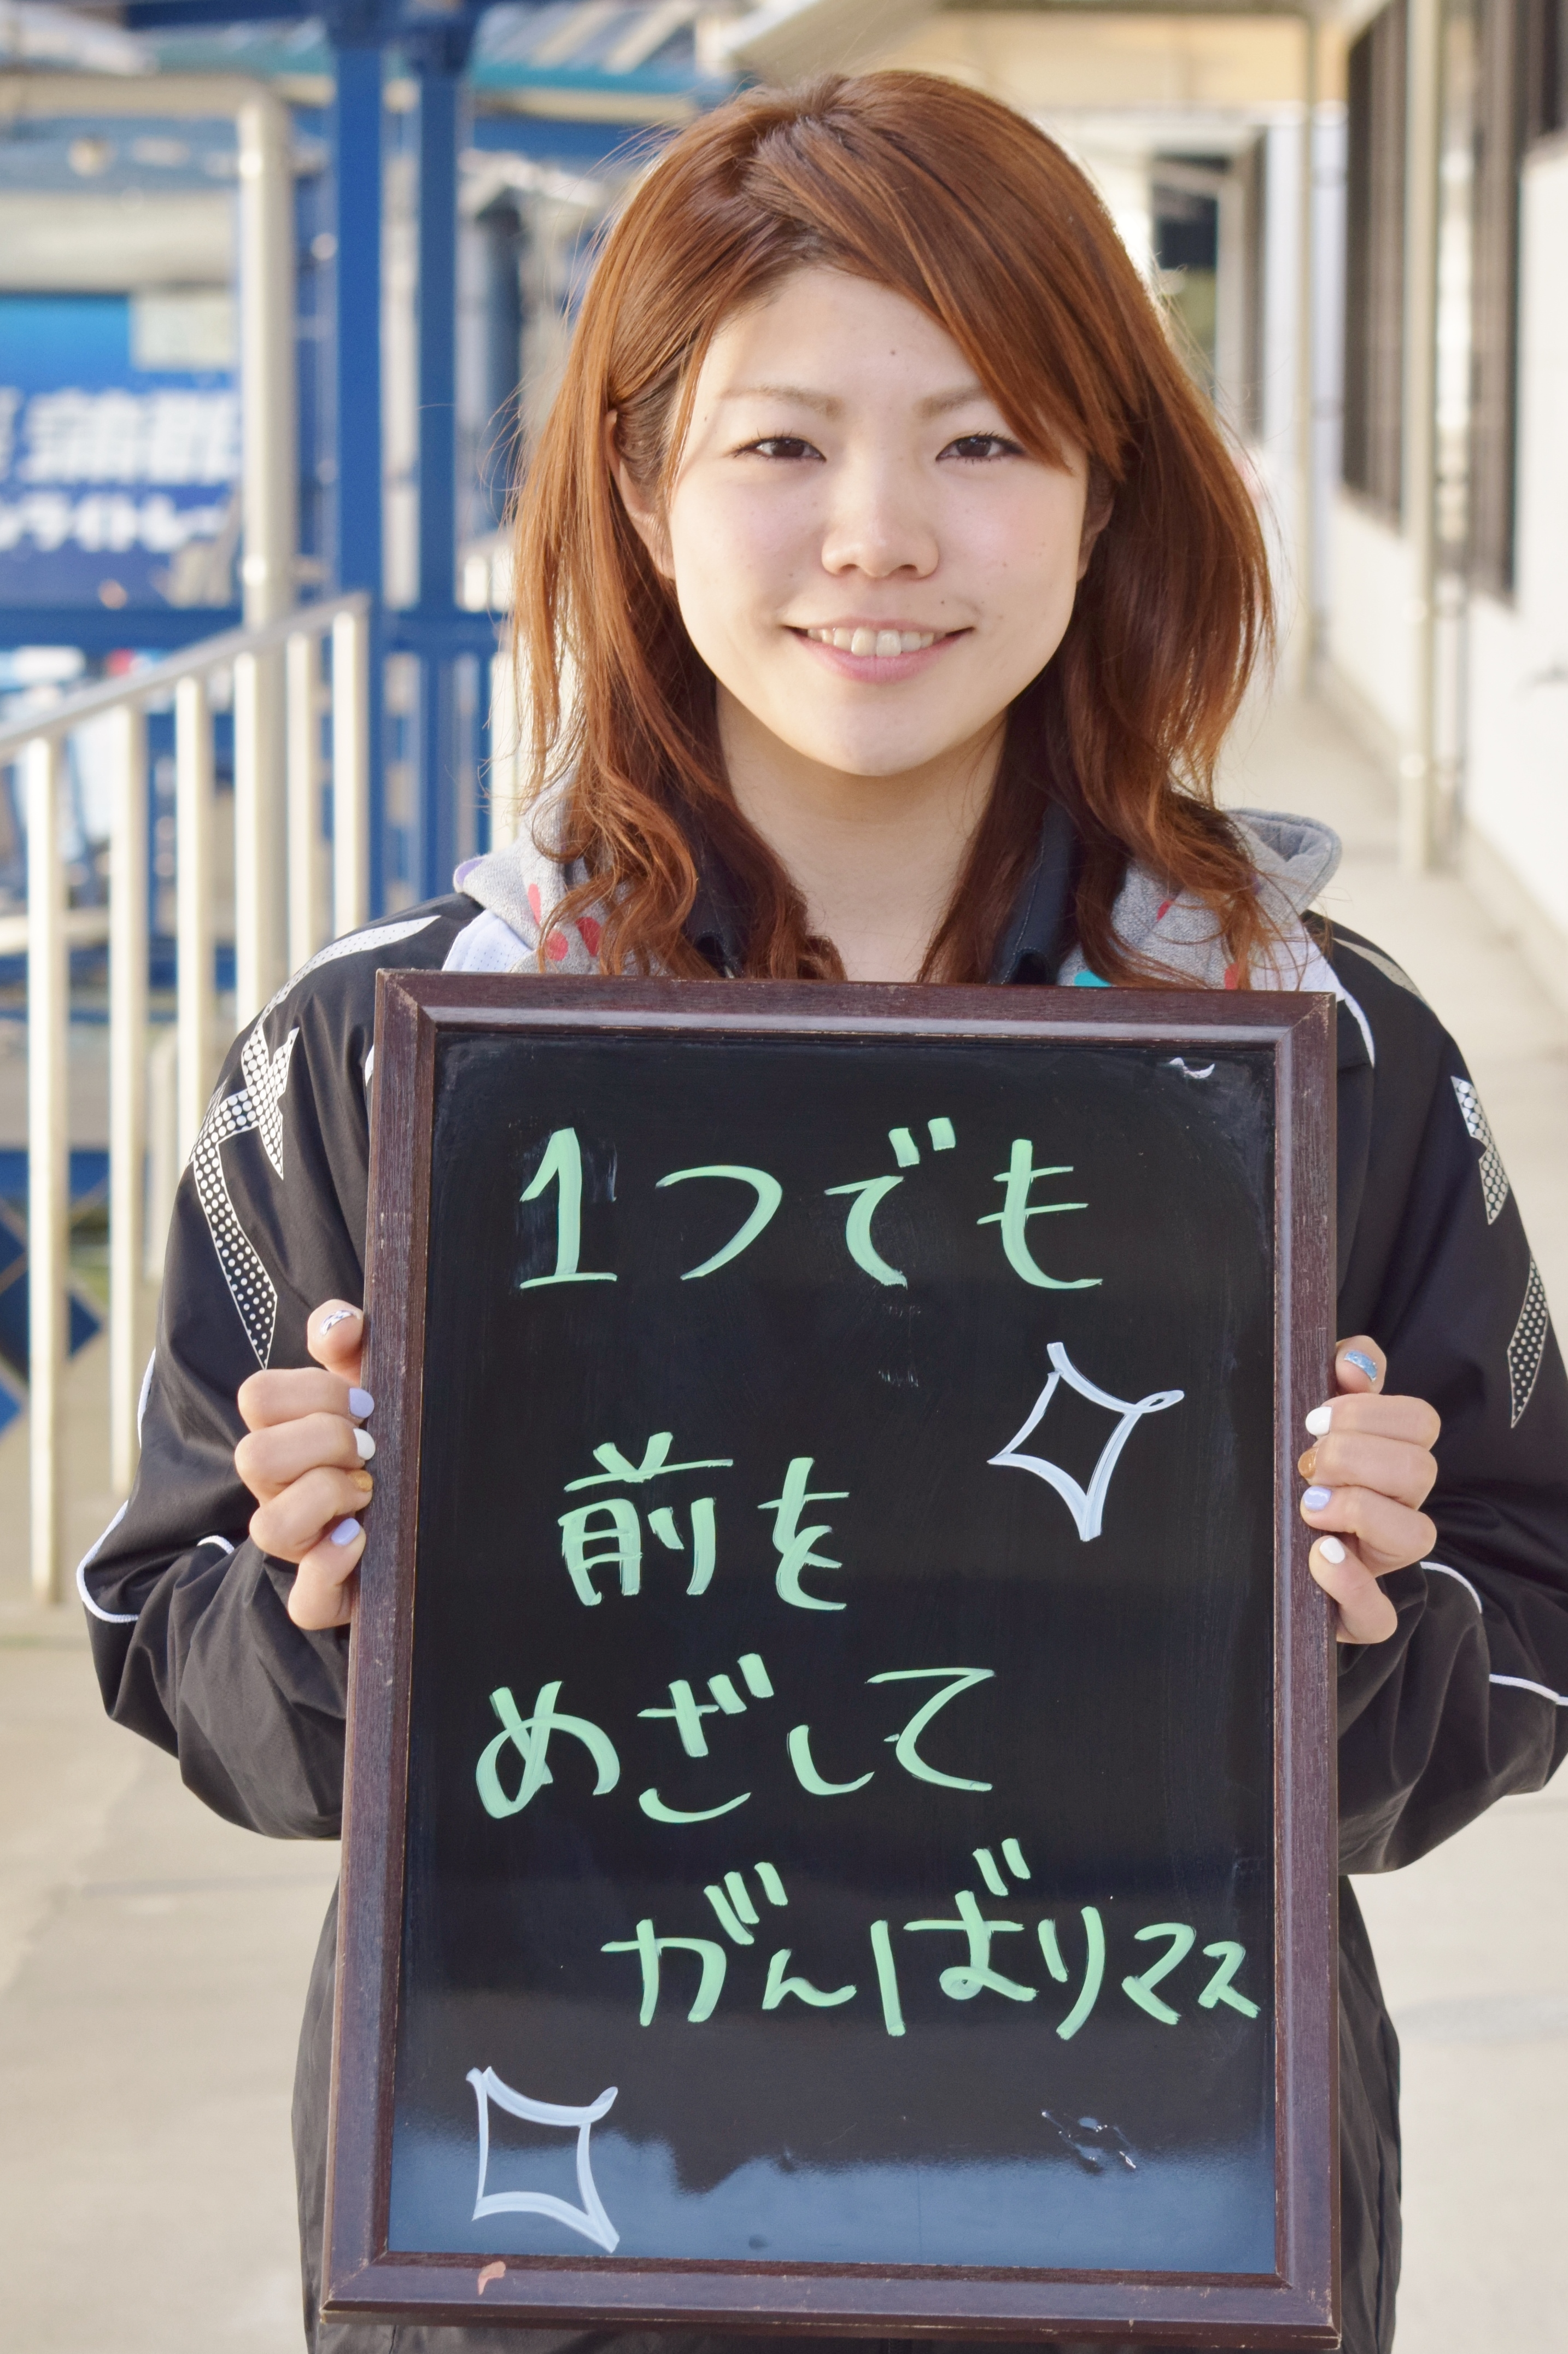 蒲郡
1つでも
前を
めざして
がんばりマス